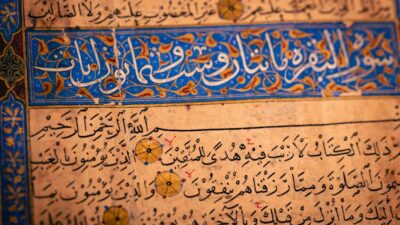 عليهم غير المغضوب عليهم ولا الضالين
سورة البقرة مائتان وست وثمانون آيات
بسم الله الرحمن الرحيم
ذلك الكتاب لا ريب فيه هدى للمتقين الذين يؤمنون بالغيب
يقيمون الصلوة ومما رزقناهم ينفقون والذين يؤمنون بما
وما انزل من قبلك وبالآخرة